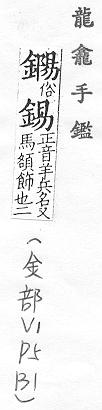 龍龕手鑑
俗
鍚
正音羊兵名又
馬額飾也二
(金部V1
P5
B1)